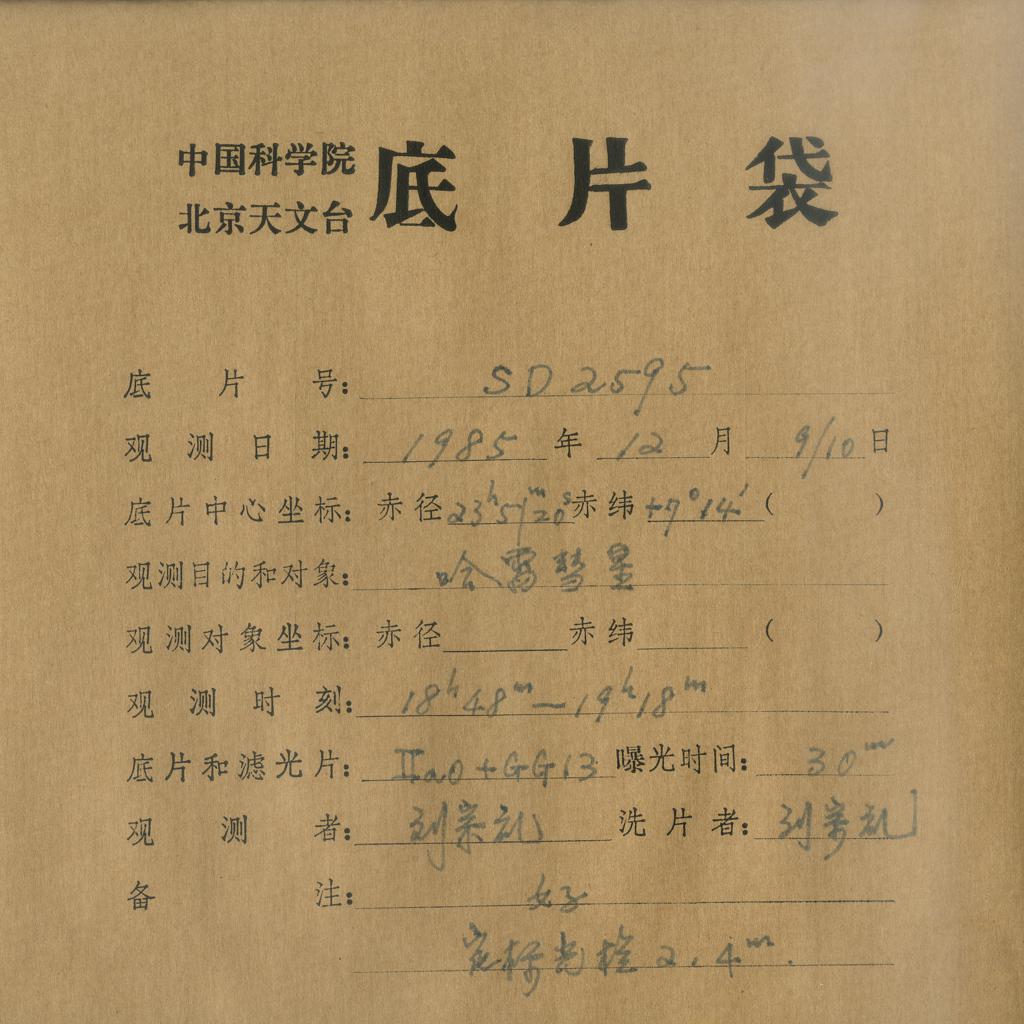 中国科学院
北京天文台
底片袋
底片号: SD2595
观测日期: 1985年12月9/10日
底片中心坐标: 赤径23h51m20s赤纬+7°14′( )
观测目的和对象: 哈雷彗星
观测对象坐标: 赤径 赤纬 ( )
观测时刻: 18h48m—19h18m
底片和滤光片: IIa0+GG13 曝光时间: 30m
观测者: 刘宗礼 洗片者: 刘宗礼
备注: 好
定标光 2.4m.